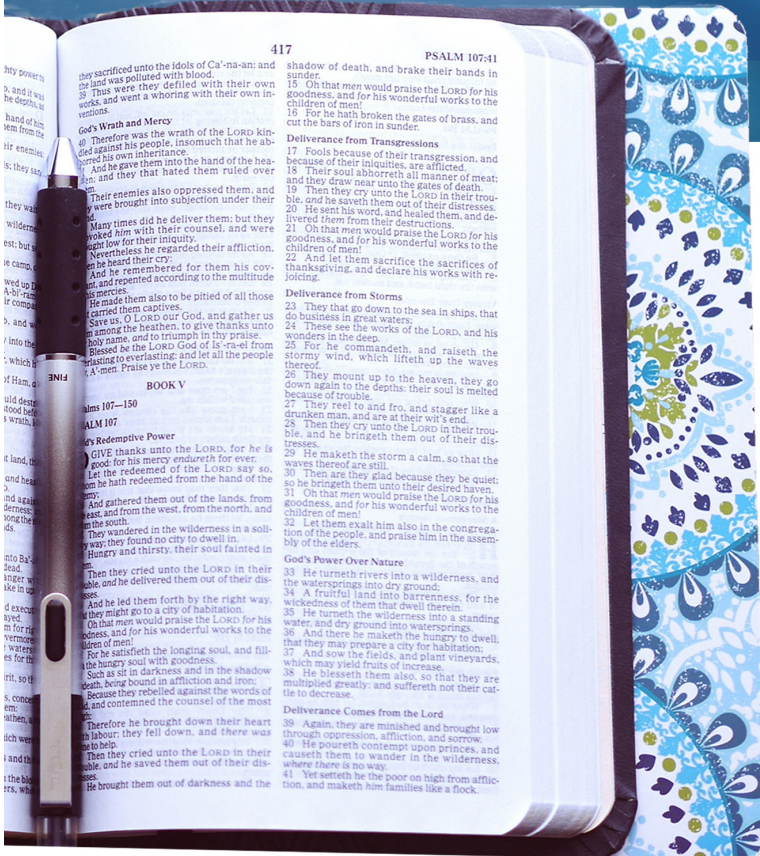 hty power to
417
PSALM 107:41
they sacrificed unto the idols of Ca'-na-an: and
the land was polluted with blood.
39 Thus were they defiled with their own
works, and went a whoring with their own in-
ventions.
God's Wrath and Mercy
40 Therefore was the wrath of the LORD kin-
dled against his people, insomuch that he ab-
horred his own inheritance.
And he gave them into the hand of the hea-
en; and they that hated them ruled over
em.
Their enemies also oppressed them, and
y were brought into subjection under their
nd.
Many times did he deliver them; but they
voked him with their counsel, and were
ught low for their iniquity.
Nevertheless he regarded their affliction,
en he heard their cry:
And he remembered for them his cov-
ant, and repented according to the multitude
his mercies.
He made them also to be pitied of all those
t carried them captives.
Save us, O LORD our God, and gather us
m among the heathen, to give thanks unto
holy name, and to triumph in thy praise.
Blessed be the LORD God of Is'-ra-el from
erlasting to everlasting: and let all the people
, A'-men. Praise ye the LORD.
BOOK V
alms 107—150
ALM 107
d's Redemptive Power
O GIVE thanks unto the LORD, for he is
good: for his mercy endureth for ever.
Let the redeemed of the LORD say so,
om he hath redeemed from the hand of the
emy;
And gathered them out of the lands, from
east, and from the west, from the north, and
m the south.
They wandered in the wilderness in a soli-
y way; they found no city to dwell in.
Hungry and thirsty, their soul fainted in
m.
Then they cried unto the LORD in their
uble, and he delivered them out of their dis-
sses.
And he led them forth by the right way,
t they might go to a city of habitation.
Oh that men would praise the LORD for his
odness, and for his wonderful works to the
ldren of men!
For he satisfieth the longing soul, and fill-
the hungry soul with goodness.
Such as sit in darkness and in the shadow
death, being bound in affliction and iron;
Because they rebelled against the words of
d, and contemned the counsel of the most
gh:
Therefore he brought down their heart
h labour; they fell down, and there was
ne to help.
Then they cried unto the LORD in their
uble, and he saved them out of their dis-
sses.
He brought them out of darkness and the
shadow of death, and brake their bands in
sunder.
15 Oh that men would praise the LORD for his
goodness, and for his wonderful works to the
children of men!
16 For he hath broken the gates of brass, and
cut the bars of iron in sunder.
Deliverance from Transgressions
17 Fools because of their transgression, and
because of their iniquities, are afflicted.
18 Their soul abhorreth all manner of meat;
and they draw near unto the gates of death.
19 Then they cry unto the LORD in their trou-
ble, and he saveth them out of their distresses.
20 He sent his word, and healed them, and de-
livered them from their destructions.
21 Oh that men would praise the LORD for his
goodness, and for his wonderful works to the
children of men!
22 And let them sacrifice the sacrifices of
thanksgiving, and declare his works with re-
joicing.
Deliverance from Storms
23 They that go down to the sea in ships, that
do business in great waters;
24 These see the works of the LORD, and his
wonders in the deep.
25 For he commandeth, and raiseth the
stormy wind, which lifteth up the waves
thereof.
26 They mount up to the heaven, they go
down again to the depths: their soul is melted
because of trouble.
27 They reel to and fro, and stagger like a
drunken man, and are at their wit's end.
28 Then they cry unto the LORD in their trou-
ble, and he bringeth them out of their dis-
tresses.
29 He maketh the storm a calm, so that the
waves thereof are still.
30 Then are they glad because they be quiet;
so he bringeth them unto their desired haven.
31 Oh that men would praise the LORD for his
goodness, and for his wonderful works to the
children of men!
32 Let them exalt him also in the congrega-
tion of the people, and praise him in the assem-
bly of the elders.
God's Power Over Nature
33 He turneth rivers into a wilderness, and
the watersprings into dry ground;
34 A fruitful land into barrenness, for the
wickedness of them that dwell therein.
35 He turneth the wilderness into a standing
water, and dry ground into watersprings.
36 And there he maketh the hungry to dwell,
that they may prepare a city for habitation;
37 And sow the fields, and plant vineyards,
which may yield fruits of increase.
38 He blesseth them also, so that they are
multiplied greatly; and suffereth not their cat-
tle to decrease.
Deliverance Comes from the Lord
39 Again, they are minished and brought low
through oppression, affliction, and sorrow.
40 He poureth contempt upon princes, and
causeth them to wander in the wilderness,
where there is no way.
41 Yet setteth he the poor on high from afflic-
tion, and maketh him families like a flock.
FINE